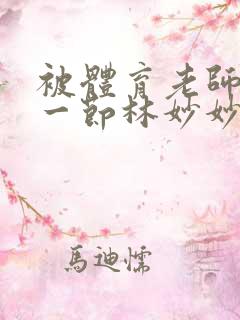 被體育老師
一節林妙妙
馬迪懦